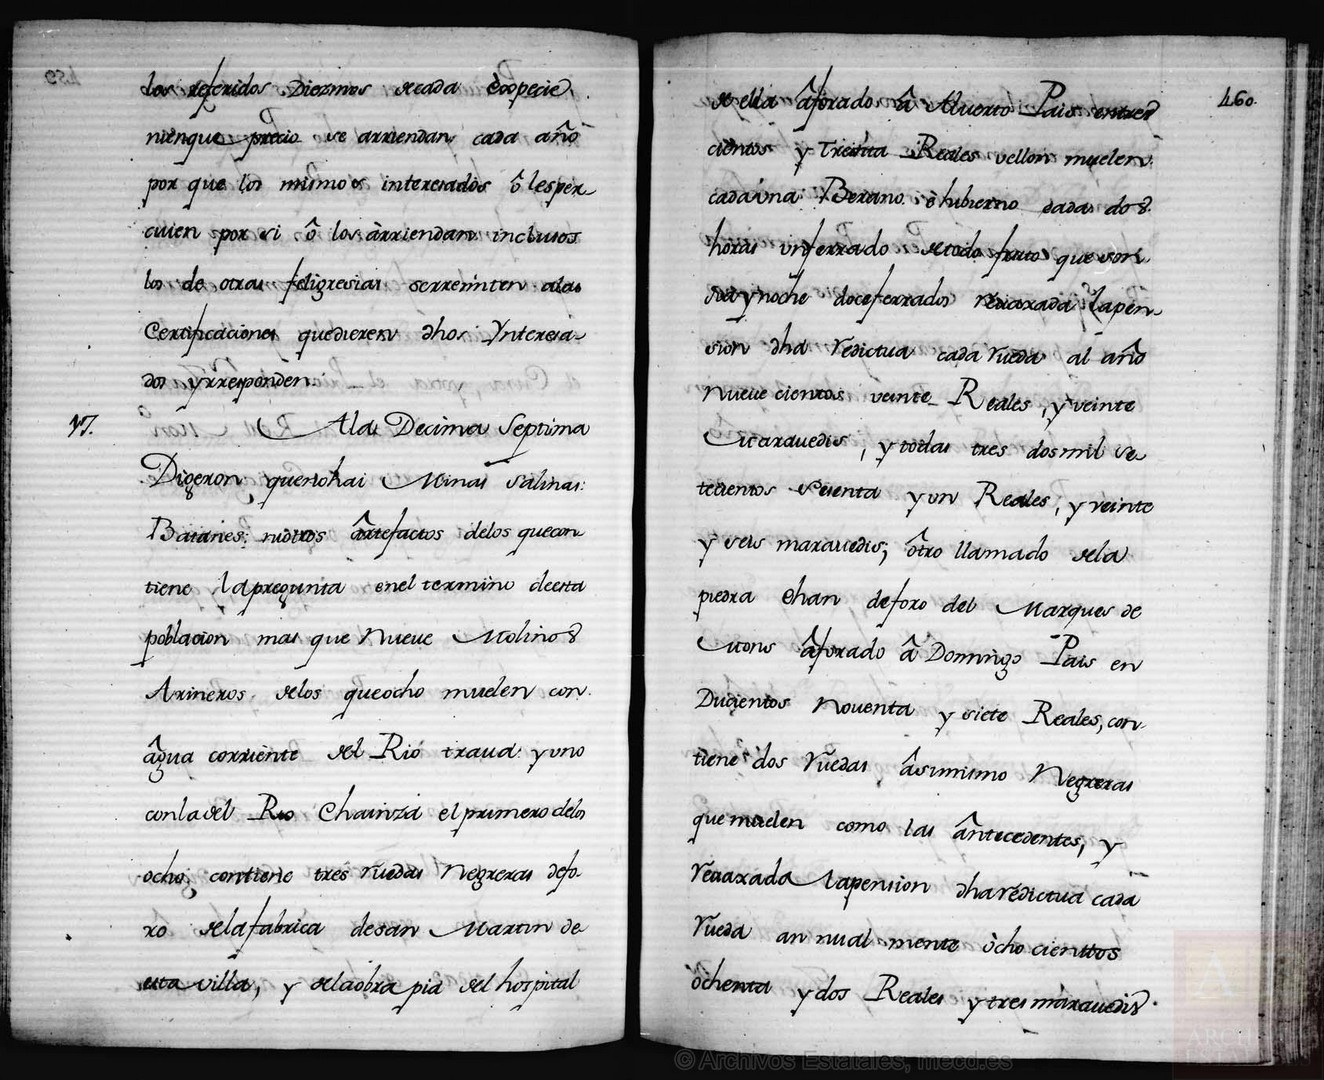 los referidos Diezmos de cada Especie
nienque precio se arriendan cada año
por que los mismos interesados ô lesper-
civen por si ô los àrriendan inclusos
los de otras feligresias serremiten alas
Certificaciones quedieren dhos Ynteresa-
dos yrresponden
17. Ala Decima Septima
Digeron quenohai Minas Salinas:
Batanes; niotros ârtefactos delos quecon
tiene lapregunta enel termino deesta
poblacion mas que Nueve Molinos
Arineros delos queocho muelen con
âgua corriente del Rio trava: yuno
conladel Rio Chainza el primero delos
ocho; contiene tres rũedas Negreras defo-
ro delafabrica desan Martin de
esta villa, y delaobra pia del hospital
460.
de ella âforado â Alverto Pais entres
cientos y Treinta Reales vellon muelen
cadaúna Berano è hibierno cada dos
horas unferrado detodo fruto que son
dia ynoche doceferrados revaxada lapen-
sion dha redictua cada rueda al año
Nueve cientos veinte Reales, y veinte
Maravedis, y todas tres dosmil se-
tecientos sesenta yun Reales, y veinte
y seis maravedis; ôtro llamado dela
piedra Chan deforo del Marques de
Mons âforado â Domingo Pais en
Ducientos Noventa y siete Reales, con-
tiene dos rũedas âsimismo Negreras
quemuelen como las ântecedentes, y
revaxada lapension dharédictua cada
rũeda annualmente òchocienttos
òchenta ydos Reales ytres màravedis.
© Archivos Estatales, mecd.es